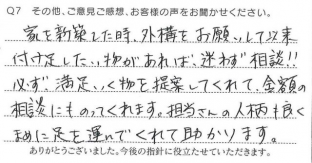 Q7 その他、ご意見ご感想、お客様の声をお聞かせください。
家を新築した時、外構をお願いして以来
付け足したい物があれば、迷わず相談!!
必ず、満足いく物を提案してくれて、金額の
相談にものってくれます。担当さんの人柄も良く
まめに足を運んでくれて助かります。
ありがとうございました。今後の指針に役立たせていただきます。